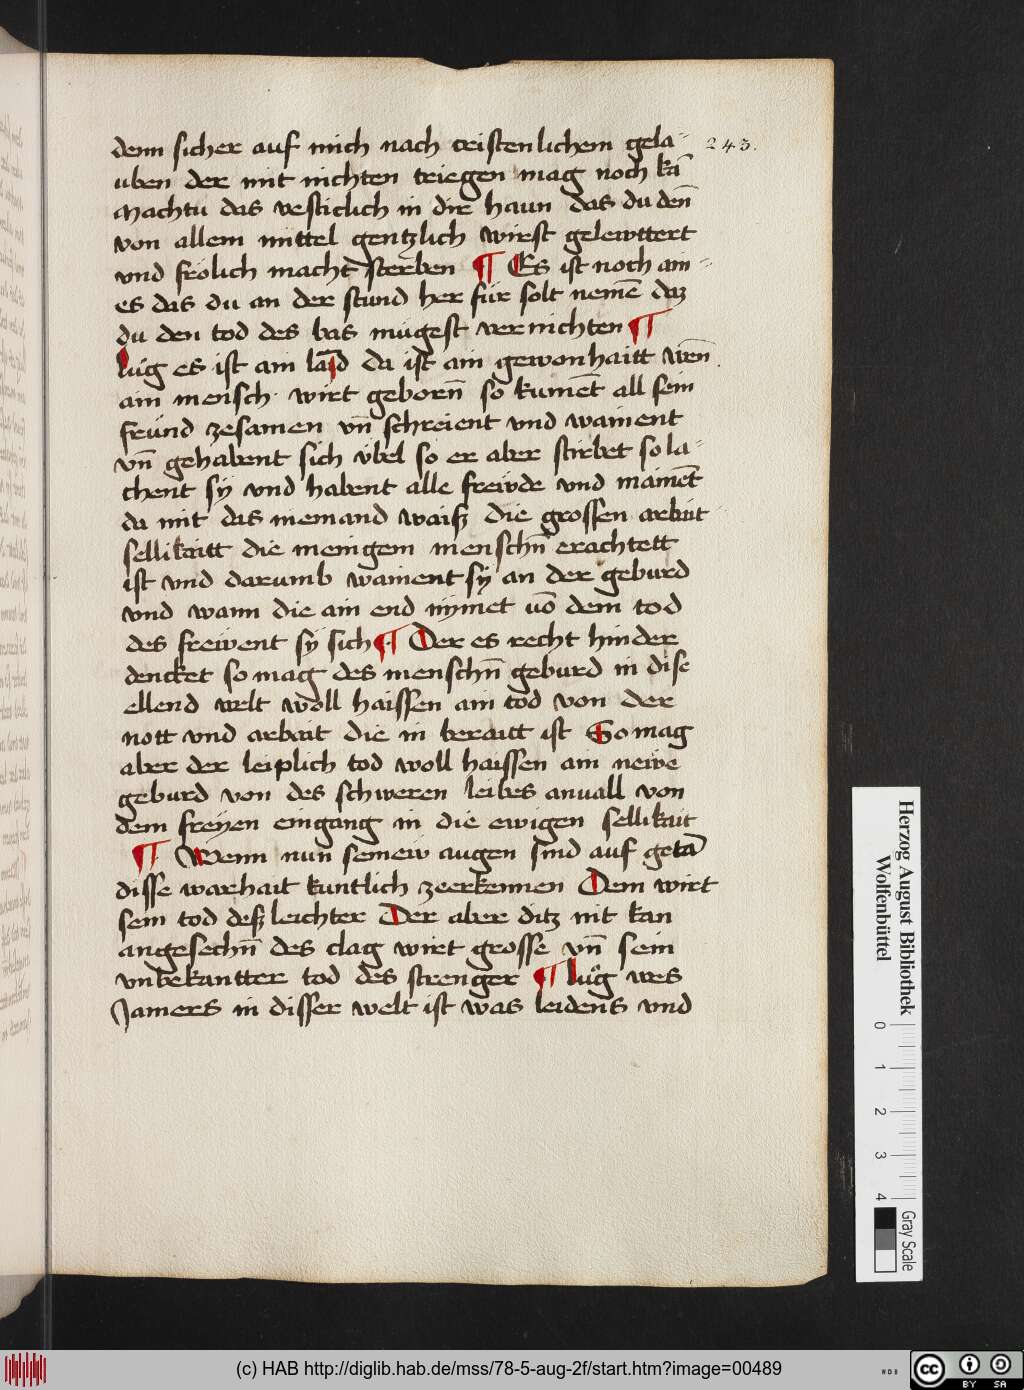 denn sicher auf mich nach cristenlichem gela⸗ 243.
uben der mit nichten triegen mag noch kā
Machtu das vesticlich in dir haun das du den̄
von allem mittel gentzlich wirst gelewttert
vnd frölich macht sterben ¶ Es ist noch ain⸗
es das du an der stund her für solt nemē daz
du den tod des bas mügest vernichten ¶
lüg es ist ain lānd da ist ain gewonhaitt wen̄
ain mensch wirt geborn̄ so kumēt all sein
fründ zesamen vn̄ schreient vnd wainent
vn̄ gehabent sich vbel so er aber stirbet so la⸗
chent sÿ vnd habent alle freẅde vnd mainēt
da mit das niemand waisz die grossen arbait
sellikaitt die menigem menschn̄ erachtett
ist vnd darumb wainent sÿ an der geburd
vnd wann die ain end nÿmet vō dem tod
des freẅent sÿ sich ¶ Der es recht hinder
dencket so mag des menschn̄ geburd in dise
ellend welt woll haissen ain tod von der
nott vnd arbait die in beraitt ist So mag
aber der leiplich tod woll haissen ain neẅe
geburd von des schweren leibes anuall von
dem freÿen eingang in die ewigen sellikait
¶ Wenn nun seineẅ augen sind auf getā
disse warhait kuntlich zeerkennen Dem wirt
sein tod desz leichter Der aber ditz nit kan
angesechn̄ des clag wirt grosse vn̄ sein
vnbekantter tod des strenger ¶ lüg wes
Jamers in disser welt ist was leidens vnd
Herzog August Bibliothek
Wolfenbüttel
0 1 2 3 4
Gray Scale
(c) HAB http://diglib.hab.de/mss/78-5-aug-2f/start.htm?image=00489
cc BY SA